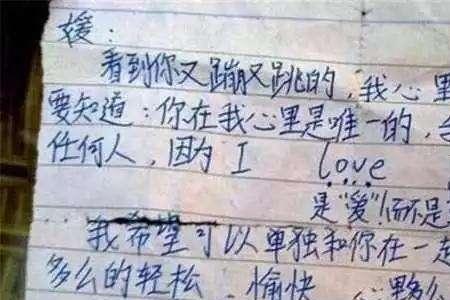 媛：
看到你又蹦又跳的，我心里
要知道：你在我心里是唯一的，
任何人，因为 I love
是“爱”！而不是
我希望可以单独和你在一起
多么的轻松，愉快